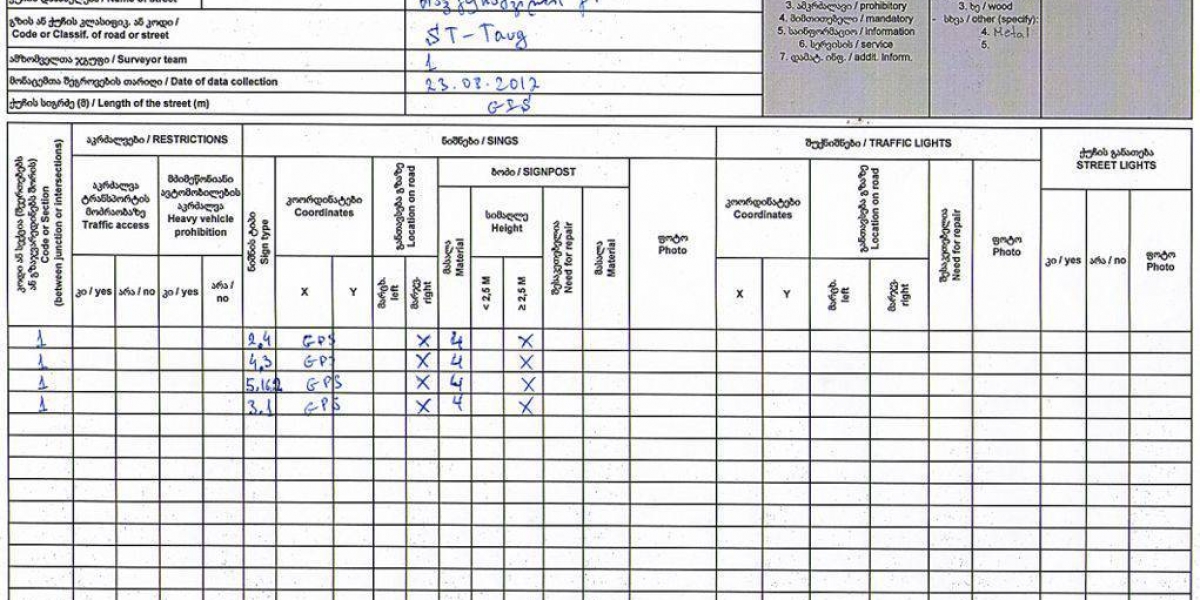 / Name of street
გზის ან ქუჩის კლასიფიკ. ან კოდი /
Code or Classif. of road or street
ST-Tavg
ამზომველთა ჯგუფი / Surveyor team
1
მონაცემთა შეგროვების თარიღი / Date of data collection
23.08.2012
ქუჩის სიგრძე (მ) / Length of the street (m)
GPS
3. ამკრძალავი / prohibitory
4. მიმთითებელი / mandatory
5. საინფორმაციო / information
6. სერვისის / service
7. დამატ. ინფ. / addit. inform.
3. ხე / wood
- სხვა / other (specify):
4. Metal
5.
კოდი ან სექცია (შეერთებებს ან გზაჯვარედინებს შორის)
Code or Section
(between junction or intersections)
აკრძალვები / RESTRICTIONS
ნიშნები / SINGS
შუქნიშნები / TRAFFIC LIGHTS
ქუჩის განათება
STREET LIGHTS
აკრძალვა
ტრანსპორტის
მოძრაობაზე
Traffic access
მძიმეწონიანი
ავტომობილების
აკრძალვა
Heavy vehicle
prohibition
ნიშნის ტიპი
Sign type
კოორდინატები
Coordinates
განთავსება გზაზე
Location on road
ბოძი / SIGNPOST
მასალა
Material
სიმაღლე
Height
შესაკეთებელია
Need for repair
მასალა
Material
ფოტო
Photo
კოორდინატები
Coordinates
განთავსება გზაზე
Location on road
შესაკეთებელია
Need for repair
ფოტო
Photo
კი / yes არა / no კი / yes არა / no
X Y
მარცხ. left
მარჯვ. right
< 2,5 M
≥ 2,5 M
X Y
მარცხ. left
მარჯვ. right
კი / yes არა / no
ფოტო
Photo
1 2,4 GPS X 4 X
1 4,3 GPS X 4 X
1 5.162 GPS X 4 X
1 3.1 GPS X 4 X